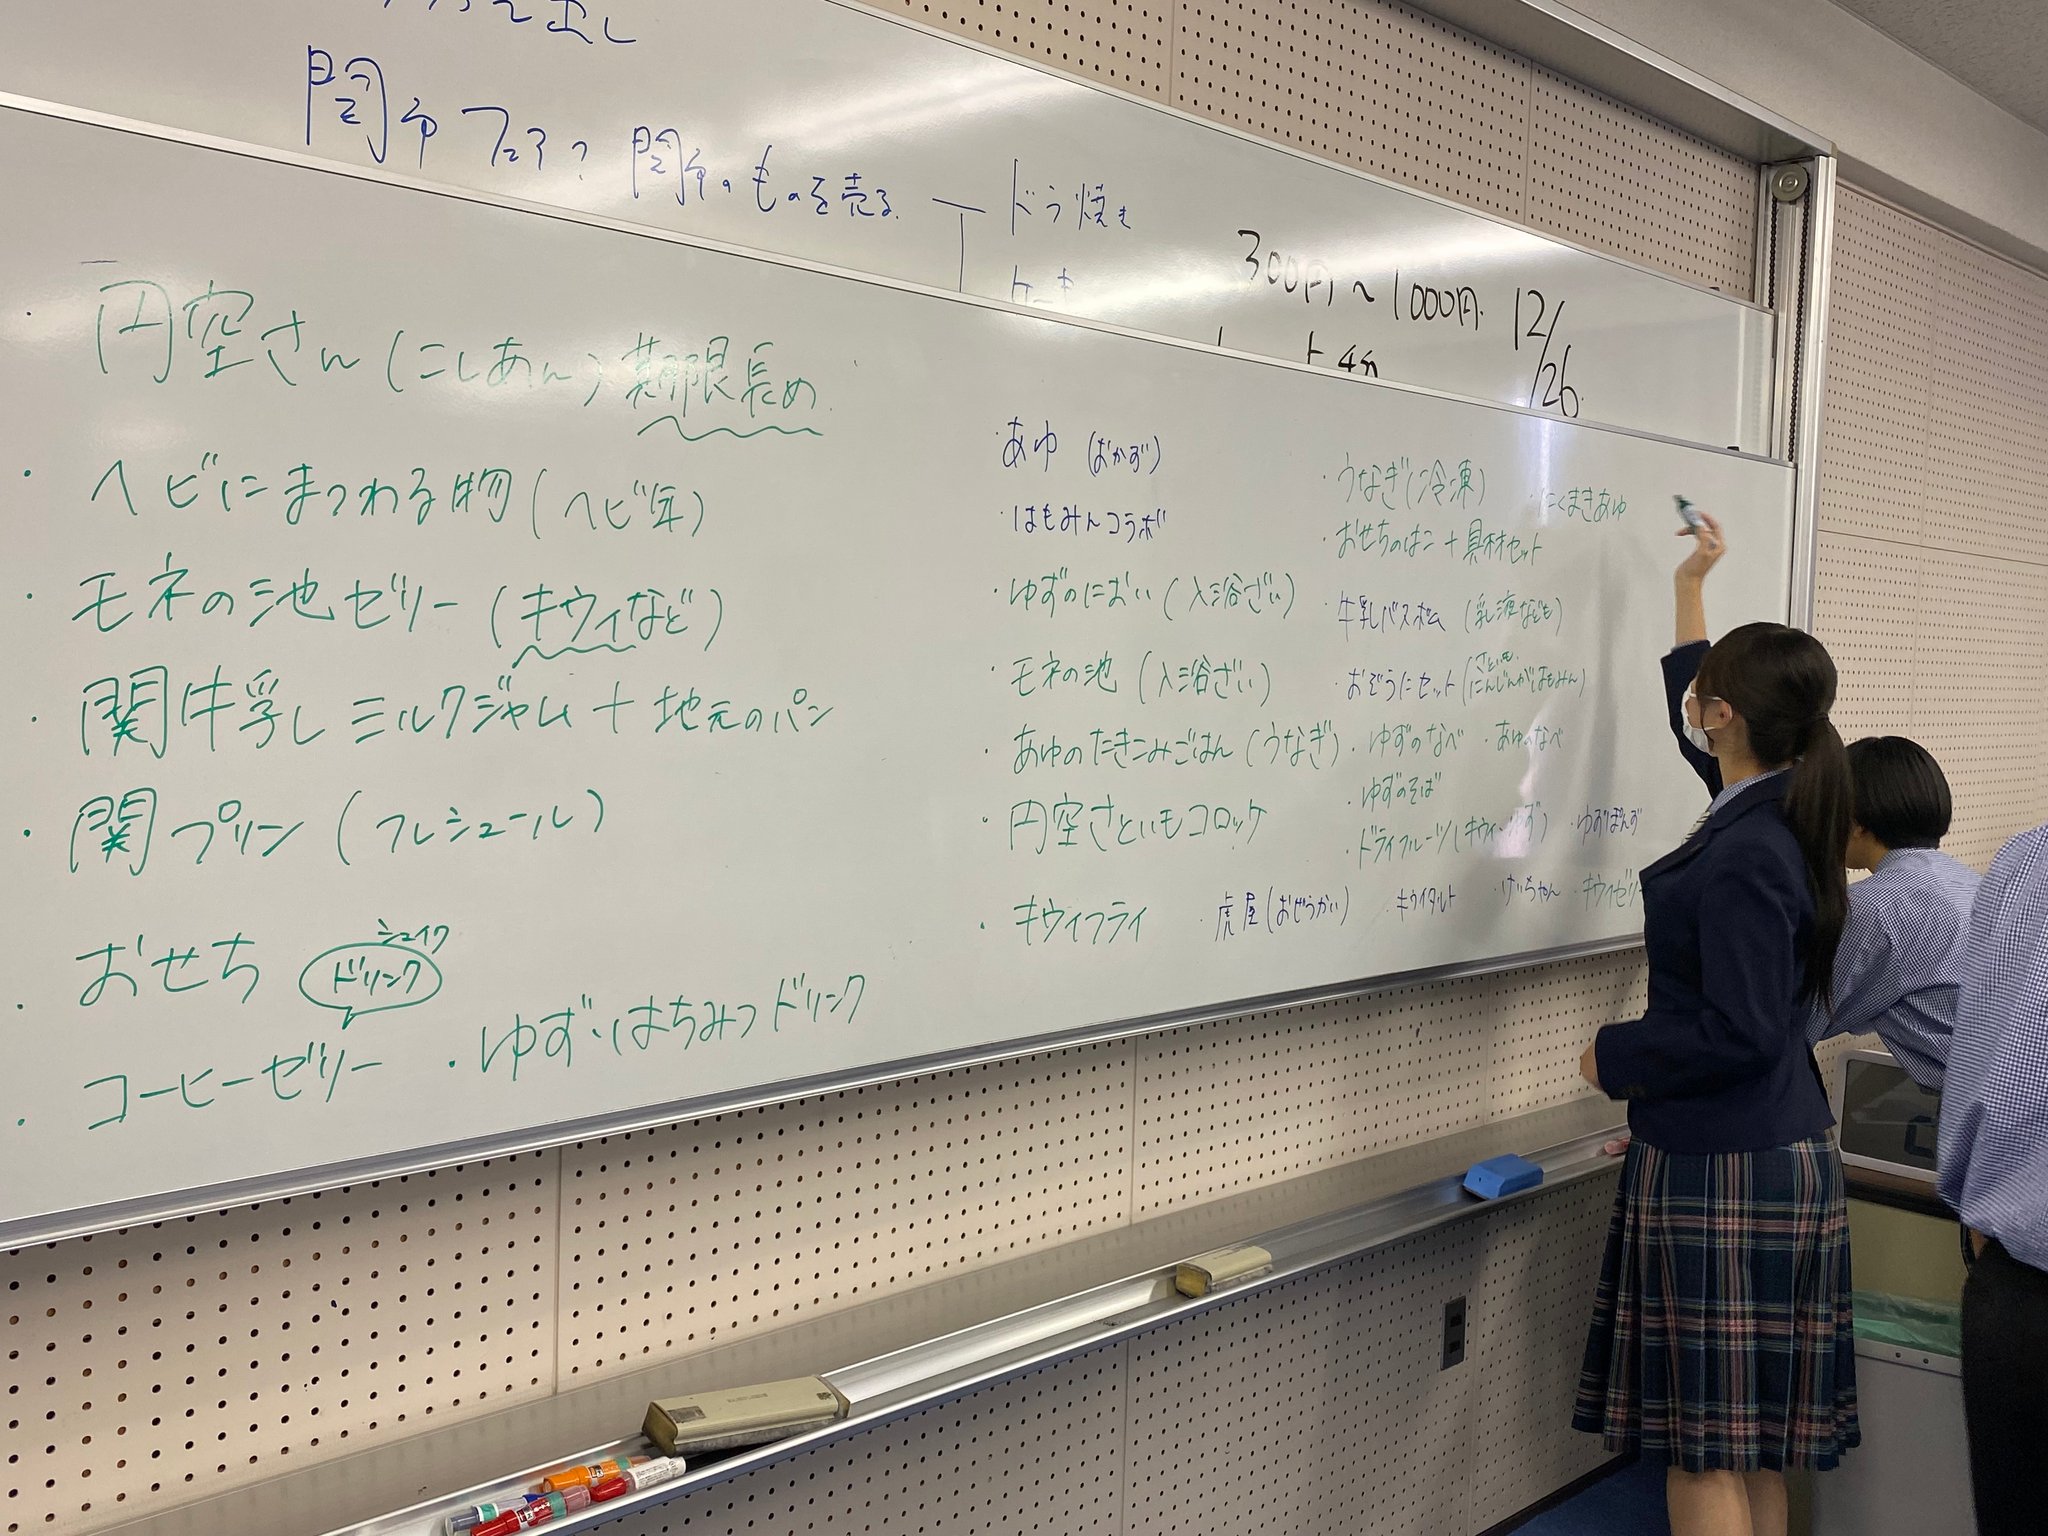 関市フェア? 関市のものを売る
ドラ焼き
ケーキ
300円〜1000円
12/26
・円空さん(こしあん)期限長め
・ヘビにまつわる物(ヘビ年)
・モネの池ゼリー(キウイなど)
・関牛乳ミルクジャム+地元のパン
・関プリン(フレシュール)
・おせち ドリンク シェイク
・コーヒーゼリー ・ゆず・はちみつドリンク
・あゆ (おかず)
・はもみんコラボ
・ゆずのにおい(入浴ざい)
・モネの池 (入浴ざい)
・あゆのたきこみごはん(うなぎ)
・円空さといもコロッケ
・キウイフライ ・虎屋(おぜうかい) ・キウイタルト ・けいちゃん ・キウイゼリー
・うなぎ(冷凍) ・にくまきあゆ
・おせちのはこ+具材セット
・牛乳バスボム (乳液なども)
・おぞうにセット(さといも、にんじんがはもみん)
・ゆずのなべ ・あゆのなべ
・ゆずのそば
・ドライフルーツ(キウイ・ゆず) ・ゆずぽんず